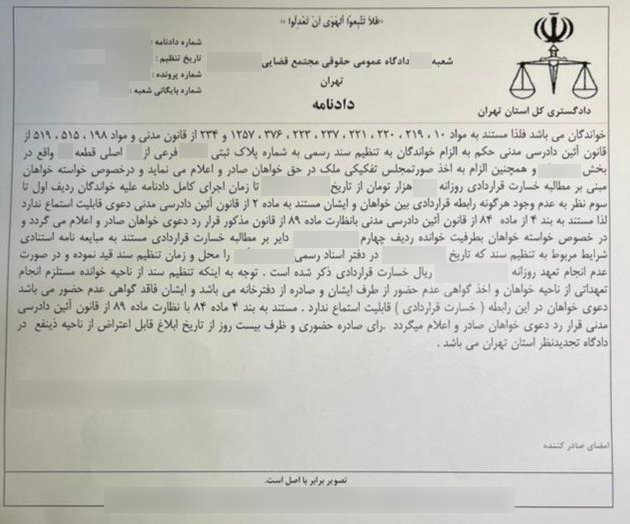 «فَلاَ تَتَّبِعوُا الْهَوَی اَنْ تَعْدِلُوا»
شماره دادنامه :
تاریخ تنظیم :
شماره پرونده :
شماره بایگانی شعبه :
شعبه دادگاه عمومی حقوقی مجتمع قضایی
تهران
دادنامه
دادگستری کل استان تهران
خواندگان می باشد فلذا مستند به مواد ۱۰ ، ۲۱۹ ، ۲۲۰ ، ۲۲۱ ، ۲۳۷ ، ۲۲۳ ، ۳۷۶ ، ۱۲۵۷ و ۲۳۴ از قانون مدنی و مواد ۱۹۸ ، ۵۱۵ ، ۵۱۹ از
قانون آئین دادرسی مدنی حکم به الزام خواندگان به تنظیم سند رسمی به شماره پلاک ثبتی فرعی از اصلی قطعه واقع در
بخش و همچنین الزام به اخذ صورتمجلس تفکیکی ملک در حق خواهان صادر و اعلام می نماید و درخصوص خواسته خواهان
مبنی بر مطالبه خسارت قراردادی روزانه هزار تومان از تاریخ تا زمان اجرای کامل دادنامه علیه خواندگان ردیف اول تا
سوم نظر به عدم وجود هرگونه رابطه قراردادی بین خواهان و ایشان مستند به ماده ۲ از قانون آئین دادرسی مدنی دعوی قابلیت استماع ندارد
لذا مستند به بند ۴ از ماده ۸۴ از قانون آئین دادرسی مدنی بانظارت ماده ۸۹ از قانون مذکور قرار رد دعوی خواهان صادر و اعلام می گردد و
در خصوص خواسته خواهان بطرفیت خوانده ردیف چهارم دایر بر مطالبه خسارت قراردادی مستند به مبایعه نامه استنادی
شرایط مربوط به تنظیم سند که تاریخ در دفتر اسناد رسمی را محل و زمان تنظیم سند قید نموده و در صورت
عدم انجام تعهد روزانه ریال خسارت قراردادی ذکر شده است . توجه به اینکه تنظیم سند از ناحیه خوانده مستلزم انجام
تعهداتی از ناحیه خواهان و اخذ گواهی عدم حضور از طرف ایشان و صادره از دفترخانه می باشد و ایشان فاقد گواهی عدم حضور می باشد
دعوی خواهان در این رابطه ( خسارت قراردادی ) قابلیت استماع ندارد . مستند به بند ۴ ماده ۸۴ با نظارت ماده ۸۹ از قانون آئین دادرسی
مدنی قرار رد دعوی خواهان صادر و اعلام میگردد .رای صادره حضوری و ظرف بیست روز از تاریخ ابلاغ قابل اعتراض از ناحیه ذینفع در
دادگاه تجدیدنظر استان تهران می باشد .
امضای صادر کننده
تصویر برابر با اصل است.